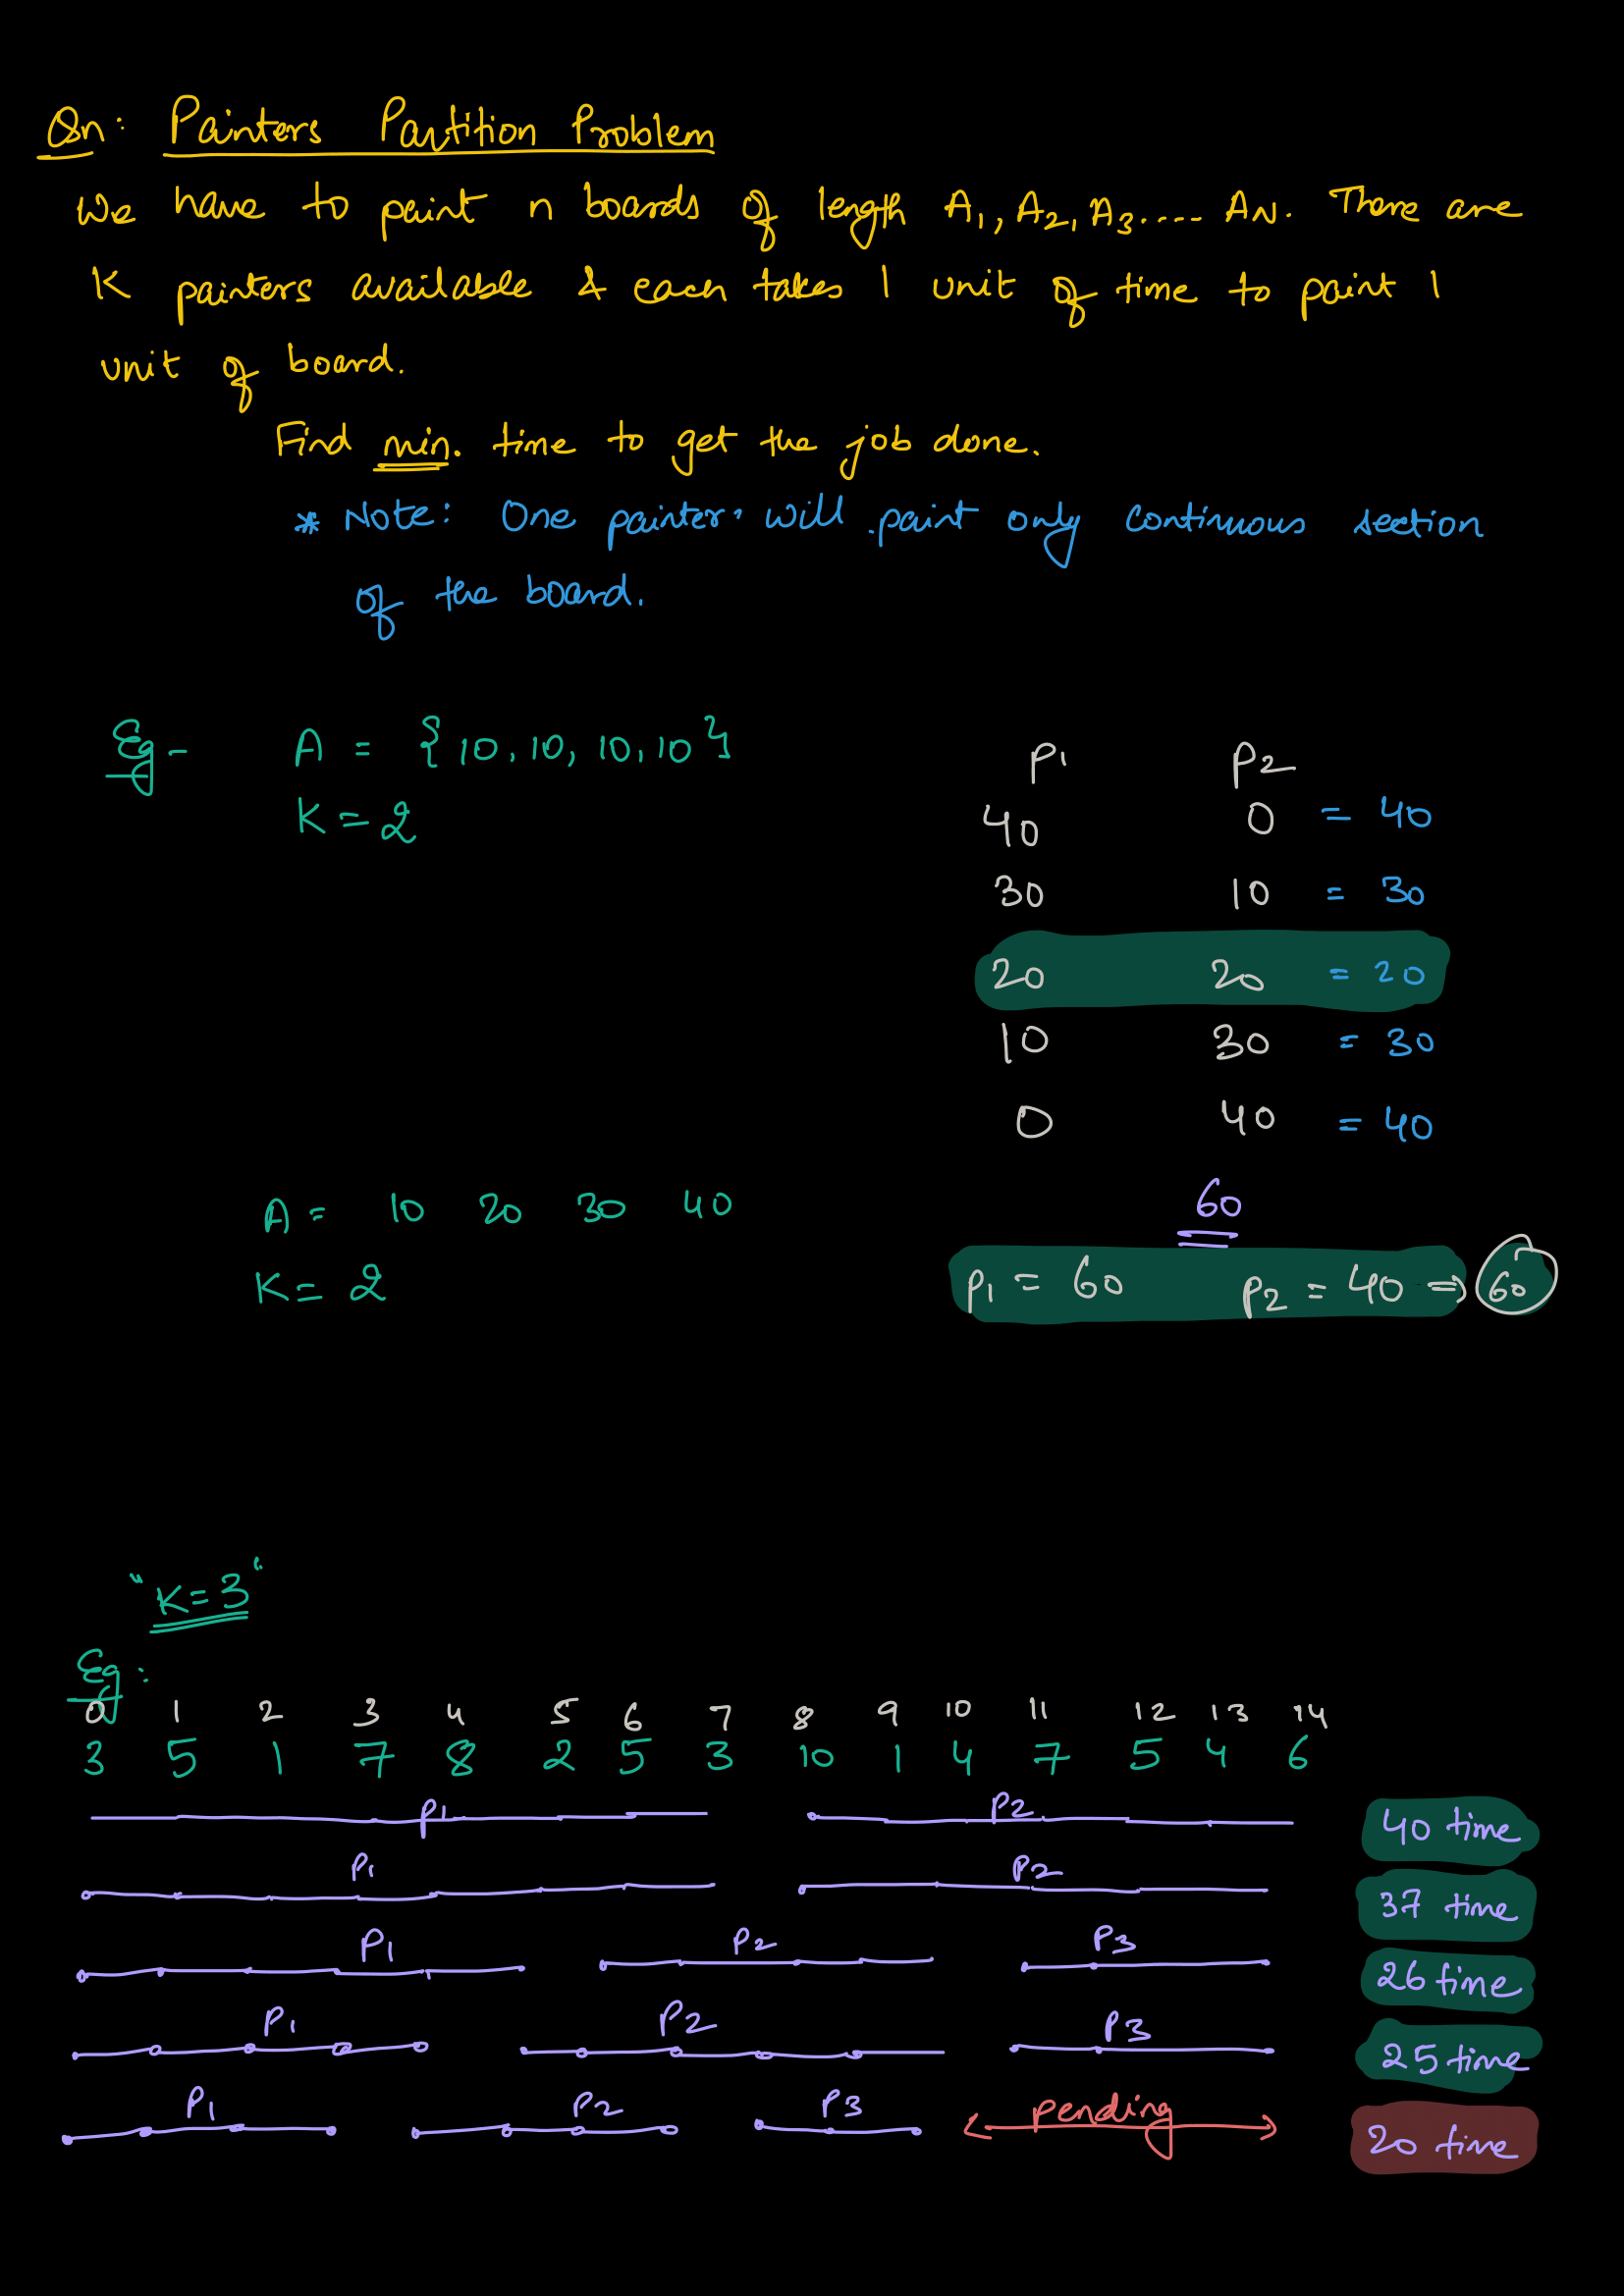 Qn: Painters Partition Problem
We have to paint n boards of length A1, A2, A3.... AN. There are
K painters available & each takes 1 unit of time to paint 1
unit of board.
Find min. time to get the job done.
* Note: One painter will paint only continuous section
of the board.
Eg - A = {10, 10, 10, 10}
K = 2
P1 P2
40 0 = 40
30 10 = 30
20 20 = 20
10 30 = 30
0 40 = 40
A = 10 20 30 40
K = 2
60
P1 = 60 P2 = 40 => 60
"K=3"
Eg:
0 1 2 3 4 5 6 7 8 9 10 11 12 13 14
3 5 1 7 8 2 5 3 10 1 4 7 5 4 6
P1 P2 40 time
P1 P2 37 time
P1 P2 P3 26 time
P1 P2 P3 25 time
P1 P2 P3 pending 20 time